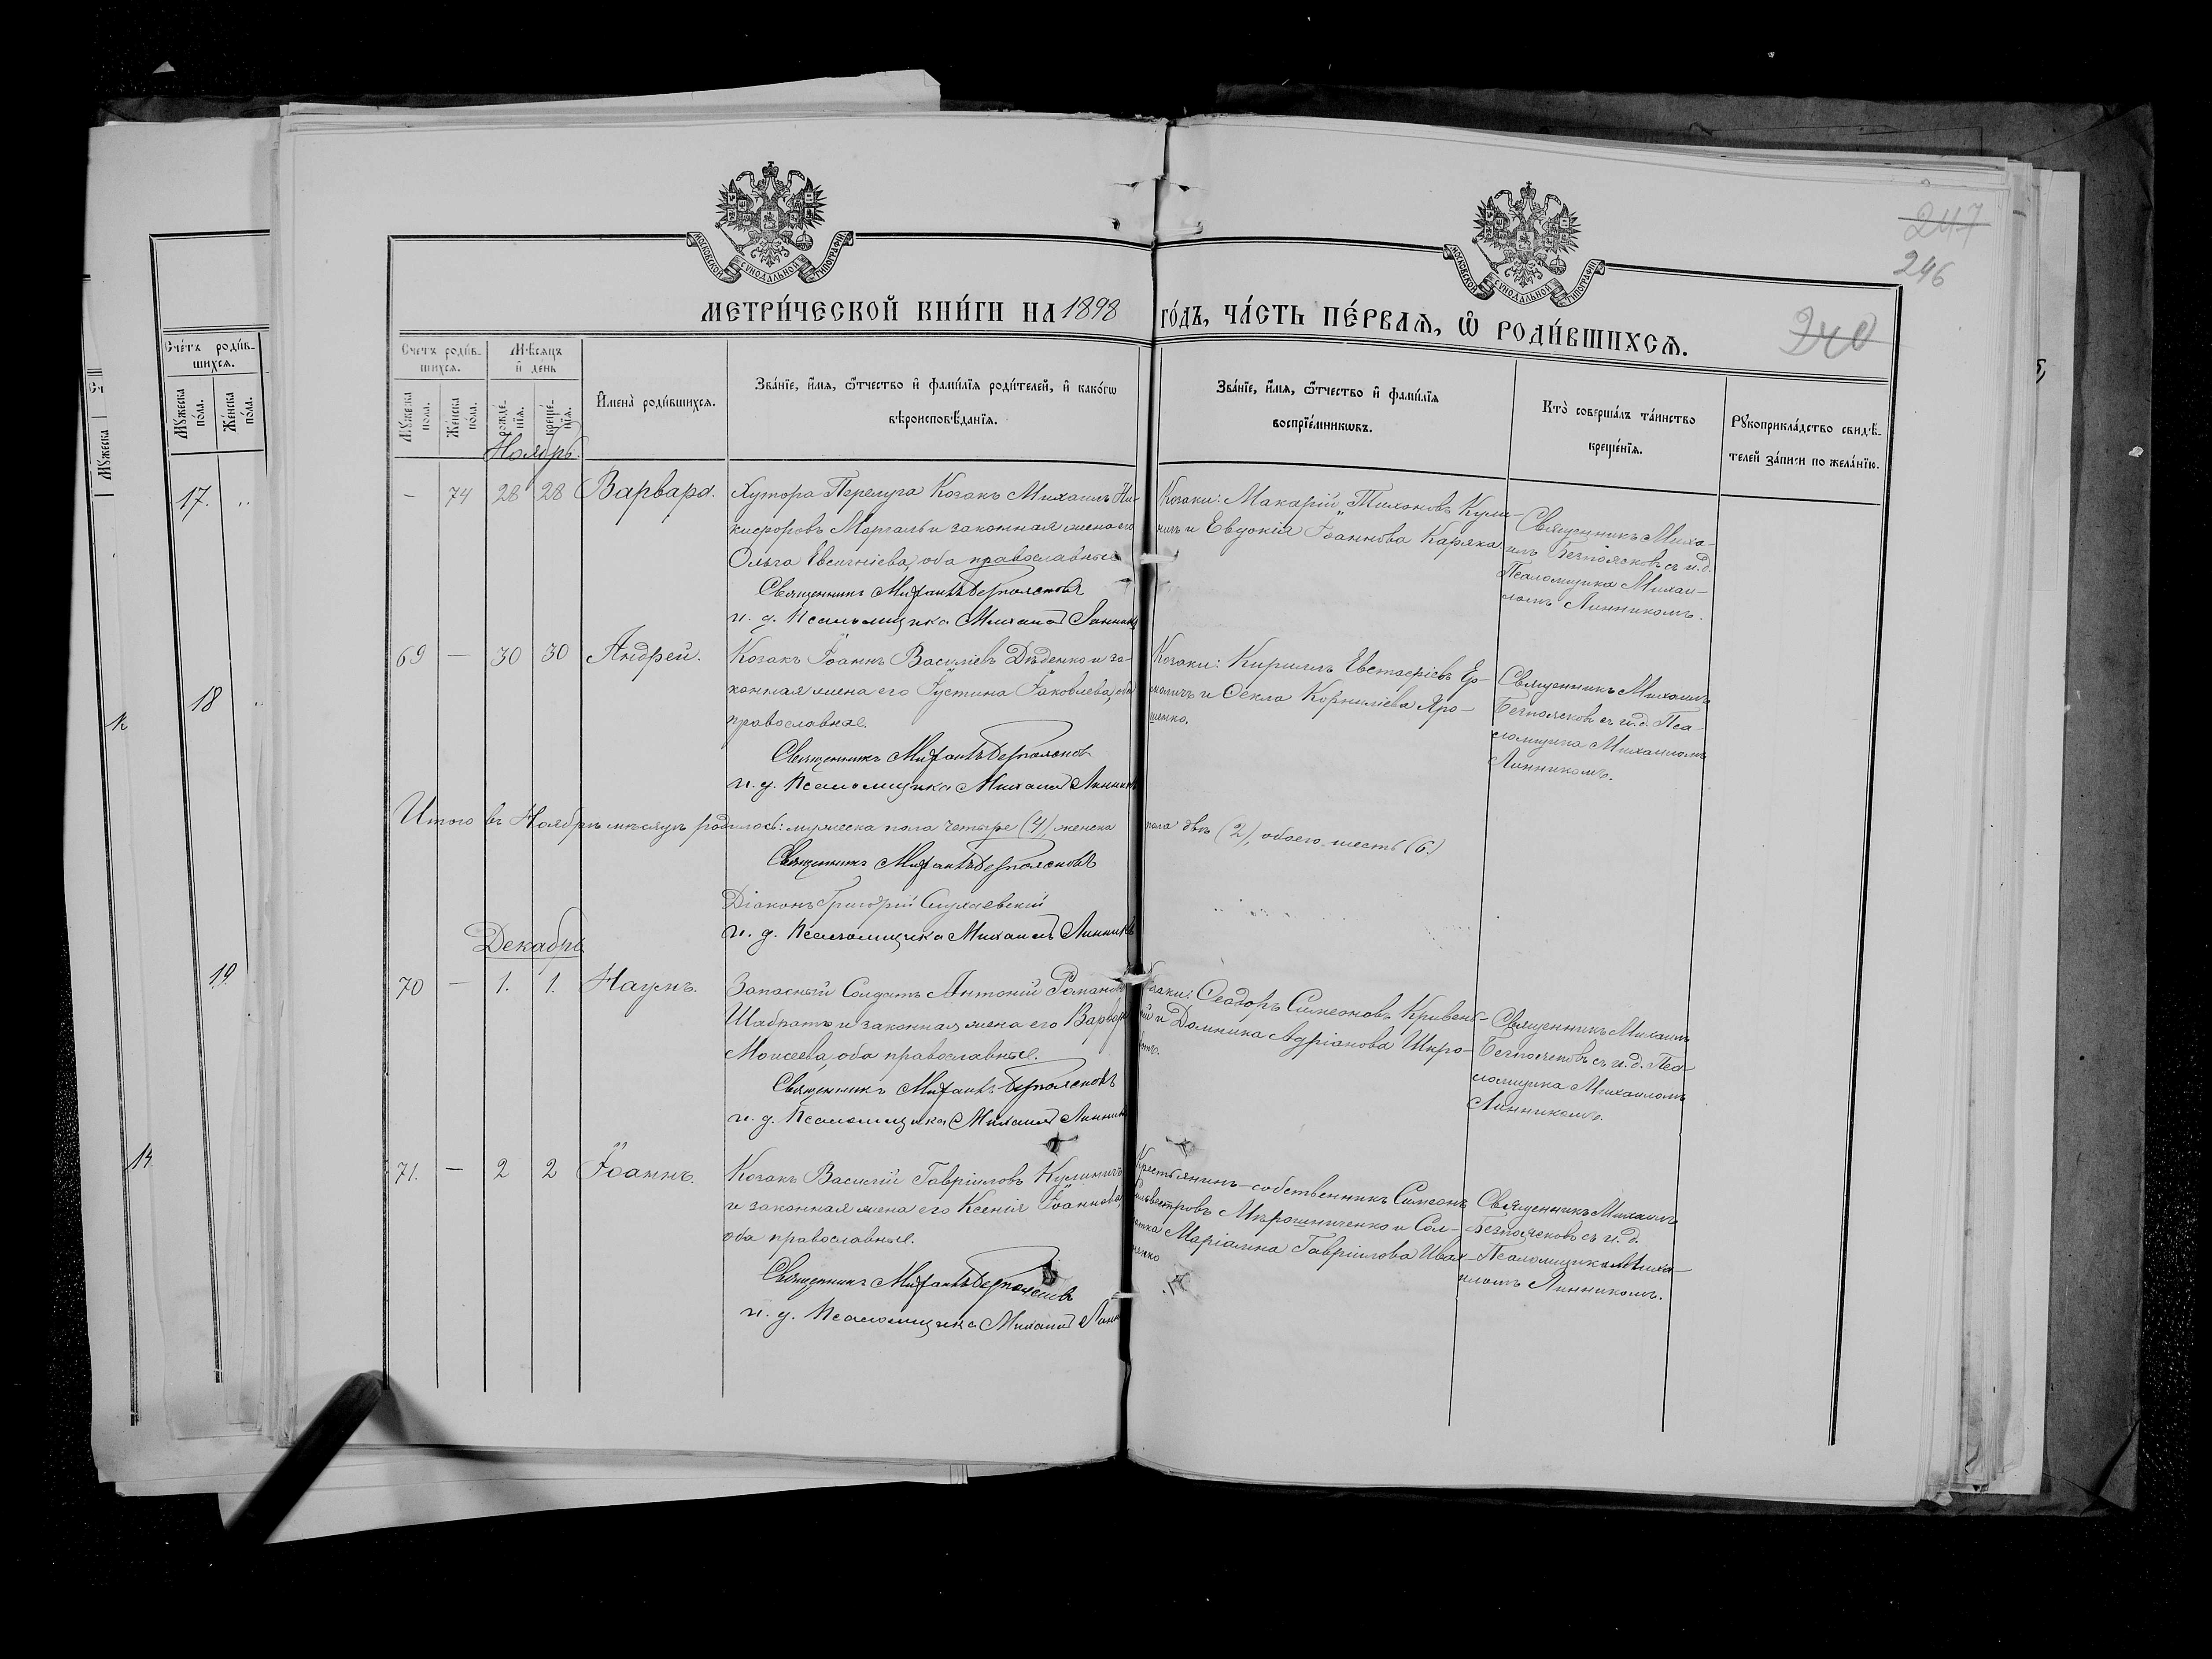 МОСКОВСКОЙ СѴНОДАЛЬНОЙ ТИПОГРАФІИ
МОСКОВСКОЙ СѴНОДАЛЬНОЙ ТИПОГРАФІИ
247
246
240
МЕТРИ́ЧЕСКОЙ КНИ́ГИ НА 1898 ГО́ДЪ, ЧА́СТЬ ПЕ́РВАѦ, Ѡ҆ РОДИ́ВШИХСѦ.
Сче́тъ роди́в-
шихсѧ.
Мꙋ́жеска по́ла.
Же́нска по́ла.
Мѣ́сѧцъ
и҆ де́нь
рожде́-
нїѧ.
креще́-
нїѧ.
И҆мена̀ роди́вшихсѧ.
Зва́нїе, и҆́мѧ, ѻ҆́тчество и҆ фами́лїѧ роди́телей, и҆ како́гѡ
вѣроисповѣ́данїѧ.
Зва́нїе, и҆́мѧ, ѻ҆́тчество и҆ фами́лїѧ
воспрїе́мникѡвъ.
Кто̀ соверша́лъ та́инство
креще́нїѧ.
Рꙋкоприкла́дство свидѣ́-
телей за́писи по жела́нїю.
Ноябрь.
— 74 28 28 Варвара.
Хутора Перелуга Козакъ Михаилъ Ни-
кифоровъ Моргаль и законная жена его
Ольга Евсигніева, оба православные
Священникъ Михаилъ Безпоясковъ
и. д. Псаломщика Михаилъ Линникъ
Козаки: Макарій Тихоновъ Кули-
ничъ и Евдокія Іоаннова Каряка
Священникъ Миха-
илъ Безпоясковъ съ и.д.
Псаломщика Михаи-
ломъ Линникомъ.
69 — 30 30 Андрей.
Козакъ Іоаннъ Василіевъ Дѣденко и за-
конная жена его Іустина Іаковлева, оба
православные.
Священникъ Михаилъ Безпоясковъ
и. д. Псаломщика Михаилъ Линникъ
Козаки: Кириллъ Евстафіевъ Ер-
моличъ и Ѳекла Корниліева Яро-
шенко.
Священникъ Михаилъ
Безпоясковъ съ и.д. Пса-
ломщика Михаиломъ
Линникомъ.
Итого въ Ноябрѣ мѣсяцѣ родилось: мужеска пола четыре (4), женска пола двѣ (2), обоего шесть (6.)
Священникъ Михаилъ Безпоясковъ
Діаконъ Григорій
и. д. Псаломщика Михаилъ Линникъ
Декабрь
70 — 1. 1. Наумъ.
Запасный Солдатъ Антоній Романовъ
Шабратъ и законная жена его Варвара
Моисеева, оба православные.
Священникъ Михаилъ Безпоясковъ
и. д. Псаломщика Михаилъ Линникъ
Козаки: Ѳеодоръ Симеоновъ Кривень-
кій и Домника Адріанова Шкро-
Священникъ Михаилъ
Безпоясковъ съ и.д. Пса-
ломщика Михаиломъ
Линникомъ.
71. — 2 2 Іоаннъ.
Козакъ Василій Гавріиловъ Кулиничъ
и законная жена его Ксенія Іоаннова,
оба православные.
Священникъ Михаилъ Безпоясковъ
и. д. Псаломщика Михаилъ
Крестьянинъ-собственникъ Симеонъ
Сильвестровъ Мирошниченко и Сол-
датка Маріанна Гавріилова Ивах-
ненко
Священникъ Михаилъ
Безпоясковъ съ и. д.
Псаломщика Миха-
иломъ Линникомъ.
Сче́тъ роди́в-
шихсѧ.
Мꙋ́жеска по́ла.
Же́нска по́ла.
17.
18
19.
Мꙋ́жеска
14